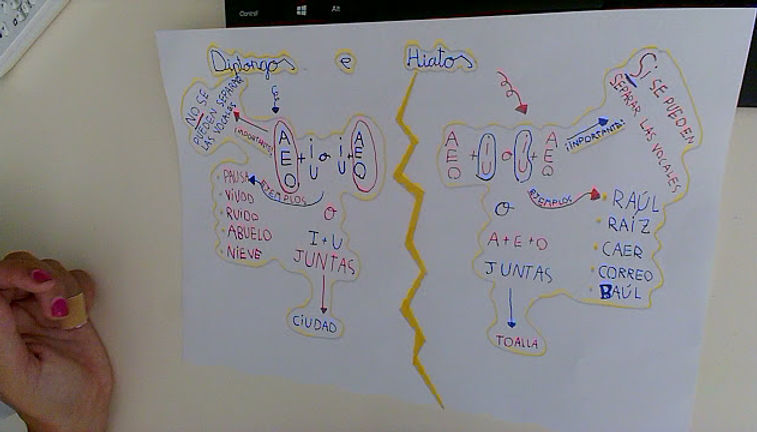 Control
Alt
Diptongos
e
Hiatos
NO SE
PUEDEN SEPARAR
LAS VOCALES
¡IMPORTANTE!
A
E
O
+
i
U
o
i
U
+
A
E
O
EJEMPLOS
· PAUSA
· VIUDO
· RUIDO
· ABUELO
· NIEVE
O
I+U
JUNTAS
CIUDAD
SI SE PUEDEN
SEPARAR LAS VOCALES
¡IMPORTANTE!
A
E
O
+
I
U
O
I
U
+
A
E
O
EJEMPLOS
· RAÚL
· RAÍZ
· CAER
· CORREO
· BAÚL
O
A+E+O
JUNTAS
TOALLA